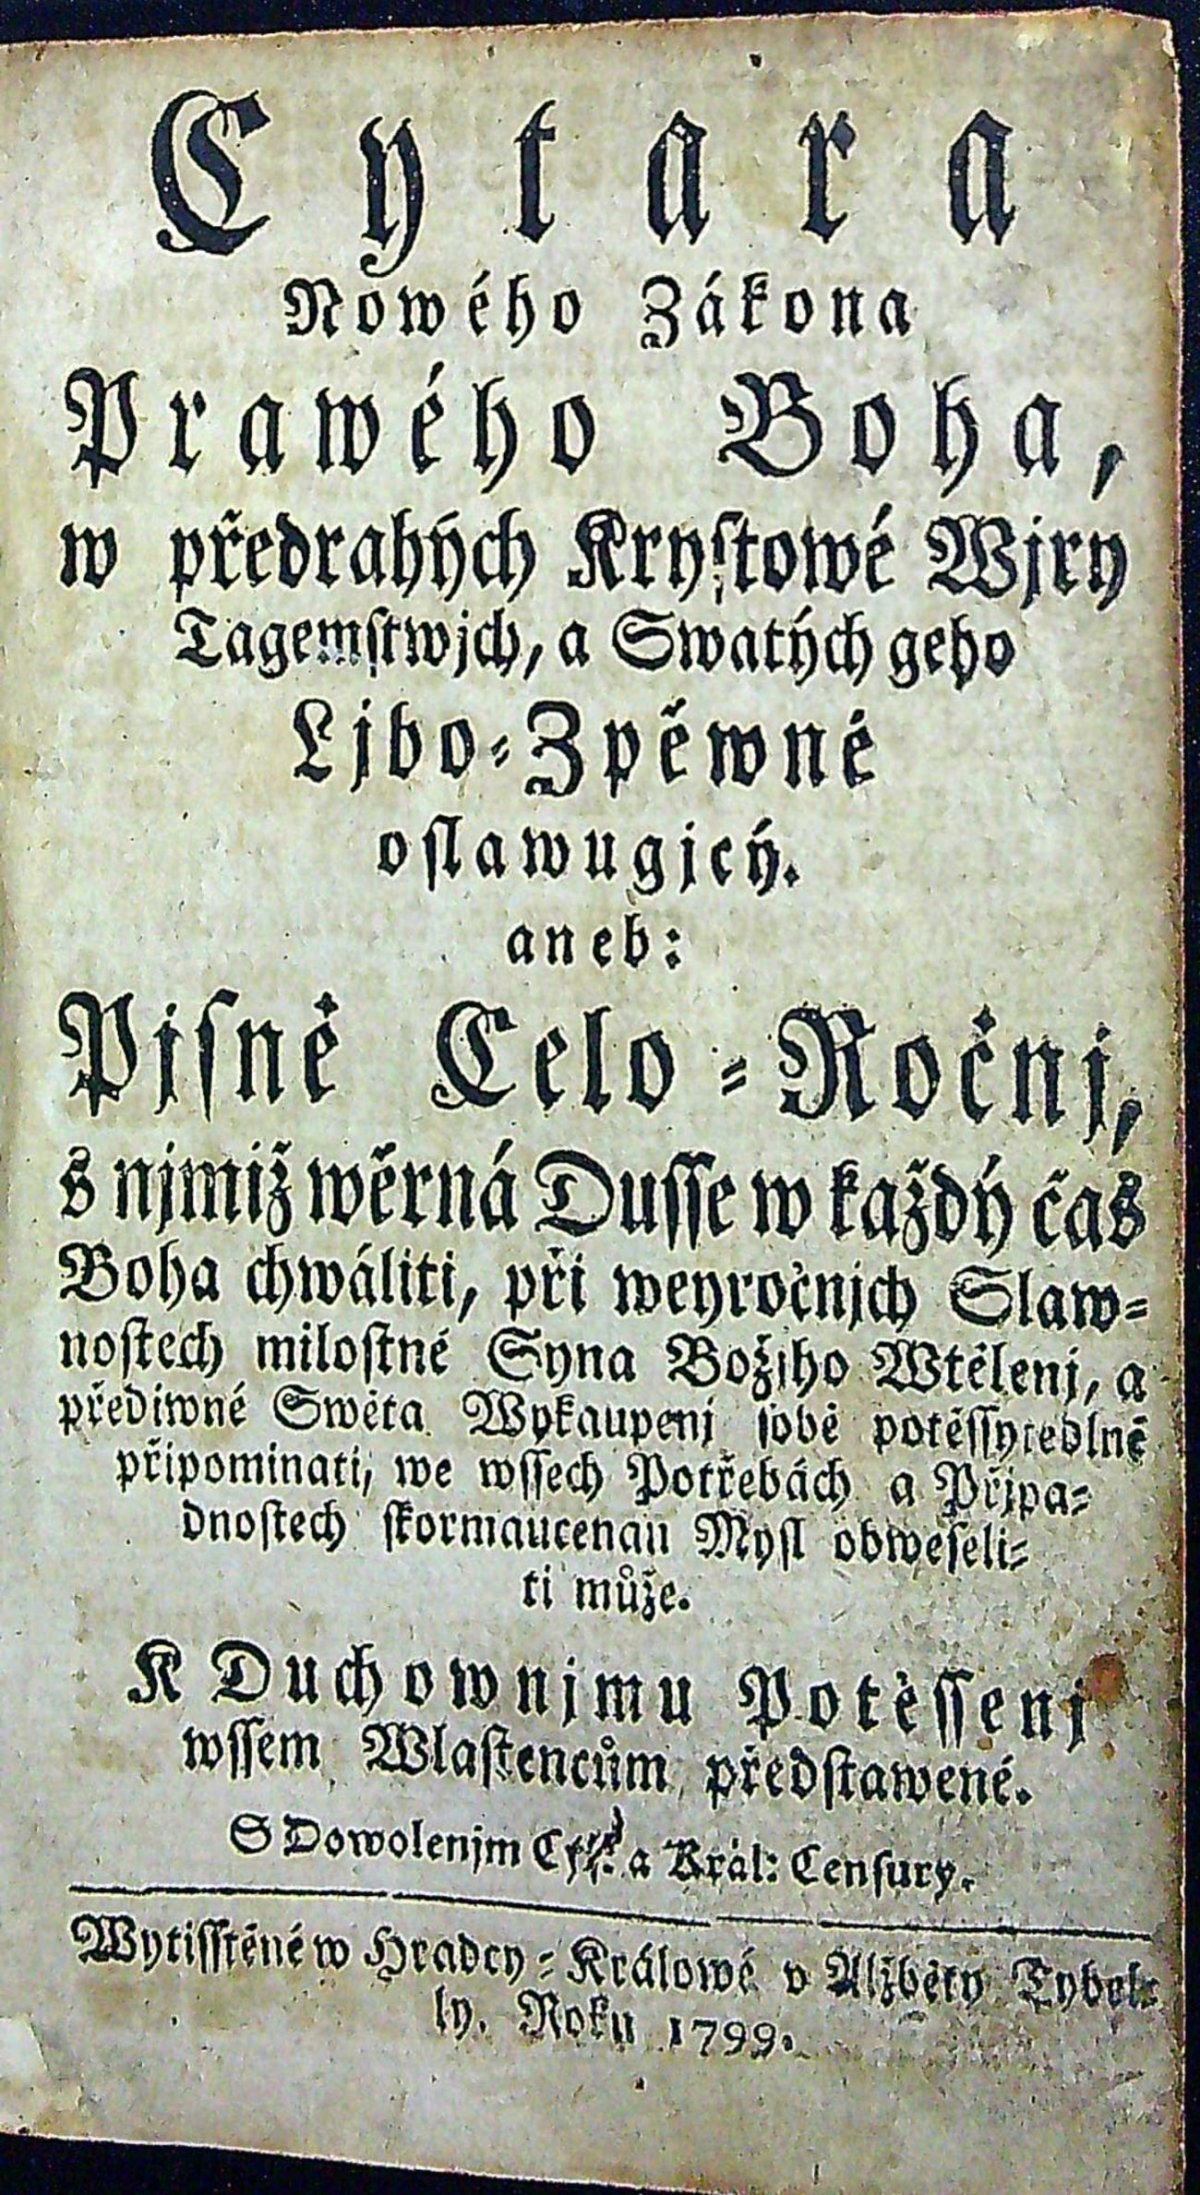 Cytara
Nowého Zákona
Prawého Boha,
w předrahých Krystowé Wjry
Tagemstwjch, a Swatých geho
Ljbo-Zpěwně
oslawugjcý.
aneb:
Pjsně Celo-Ročnj,
s njmiž wěrná Dusse w každý čas
Boha chwáliti, při weyročnjch Slaw-
nostech milostné Syna Božjho Wtělenj, a
předjwné Swěta Wykaupenj sobě potěssytedlně
připominati, we wssech Potřebách a Přjpa-
dnostech skormaucenau Mysl obweseli-
ti může.
K Duchownjmu Potěssenj
wssem Wlastencům představené.
S Dowolenjm a Král: Censury.
Wytisstěné w Hradcy-Králowé v Alžběty Tybel-
ly. Roku 1799.